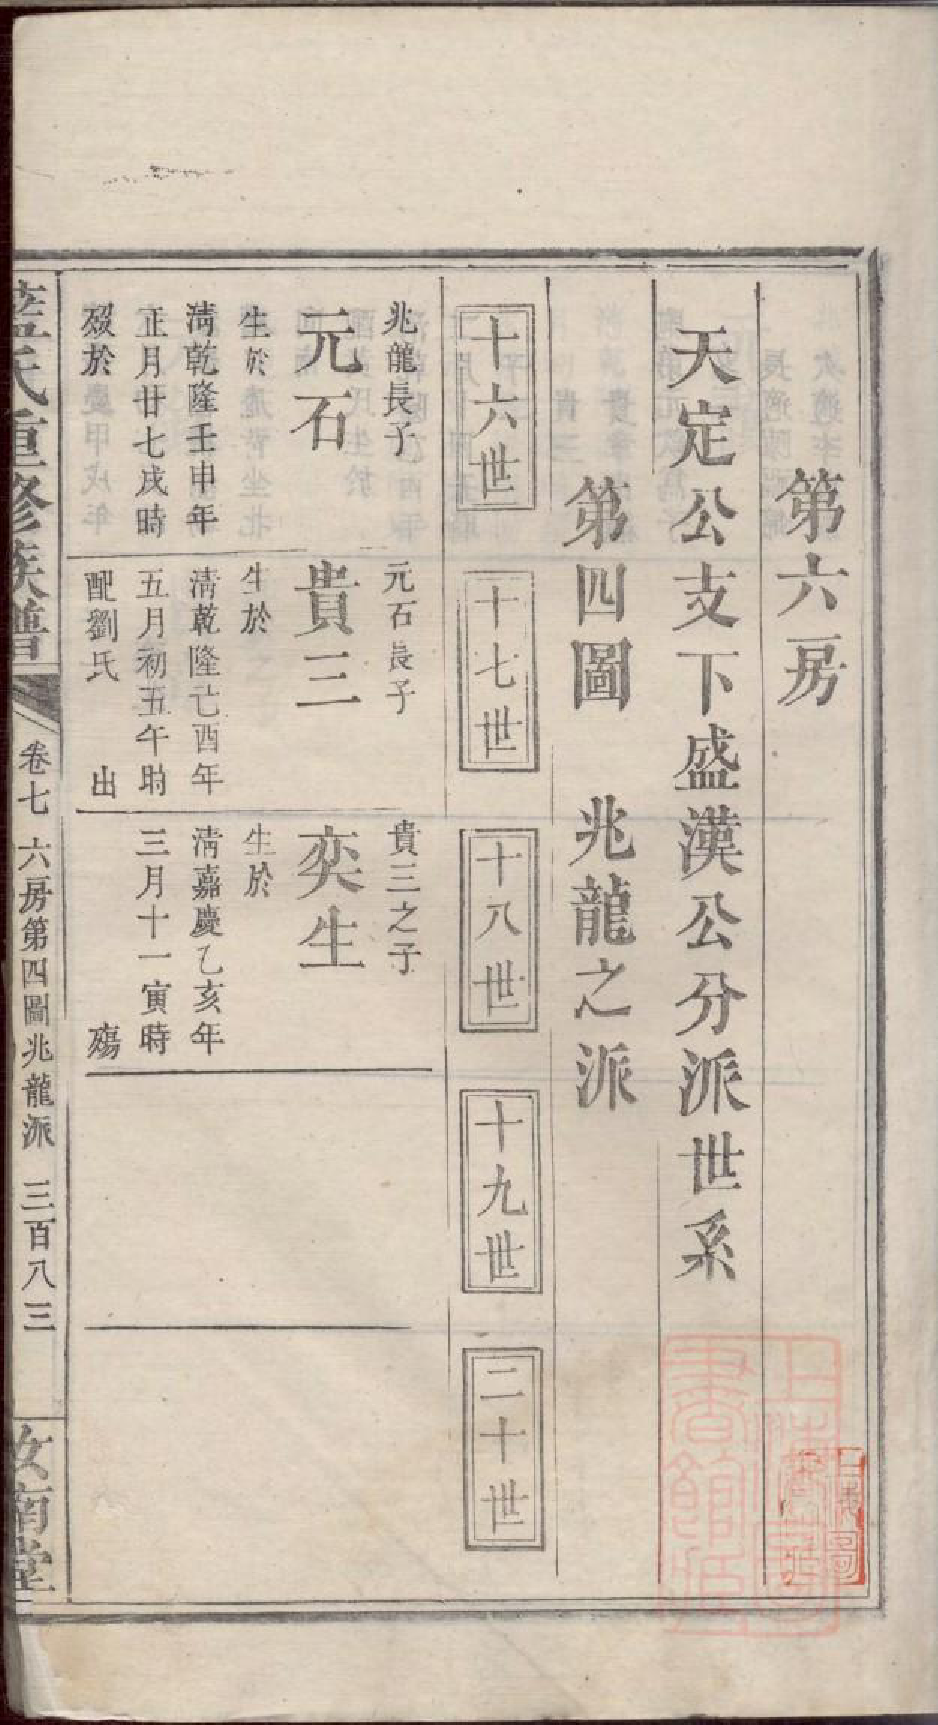 第六房
天定公支下盛漢公分派世系
第四圖 兆龍之派
十六世
十七世
十八世
十九世
二十世
兆龍長子
元石
生於
淸乾隆壬申年
正月廿七戌時
歿於
元石長子
貴三
生於
淸乾隆己酉年
五月初五午時
配劉氏 出
貴三之子
奕生
生於
淸嘉慶乙亥年
三月十一寅時
殤
藍氏重修族譜
卷七 六房第四圖兆龍派 三百八三
汝南堂